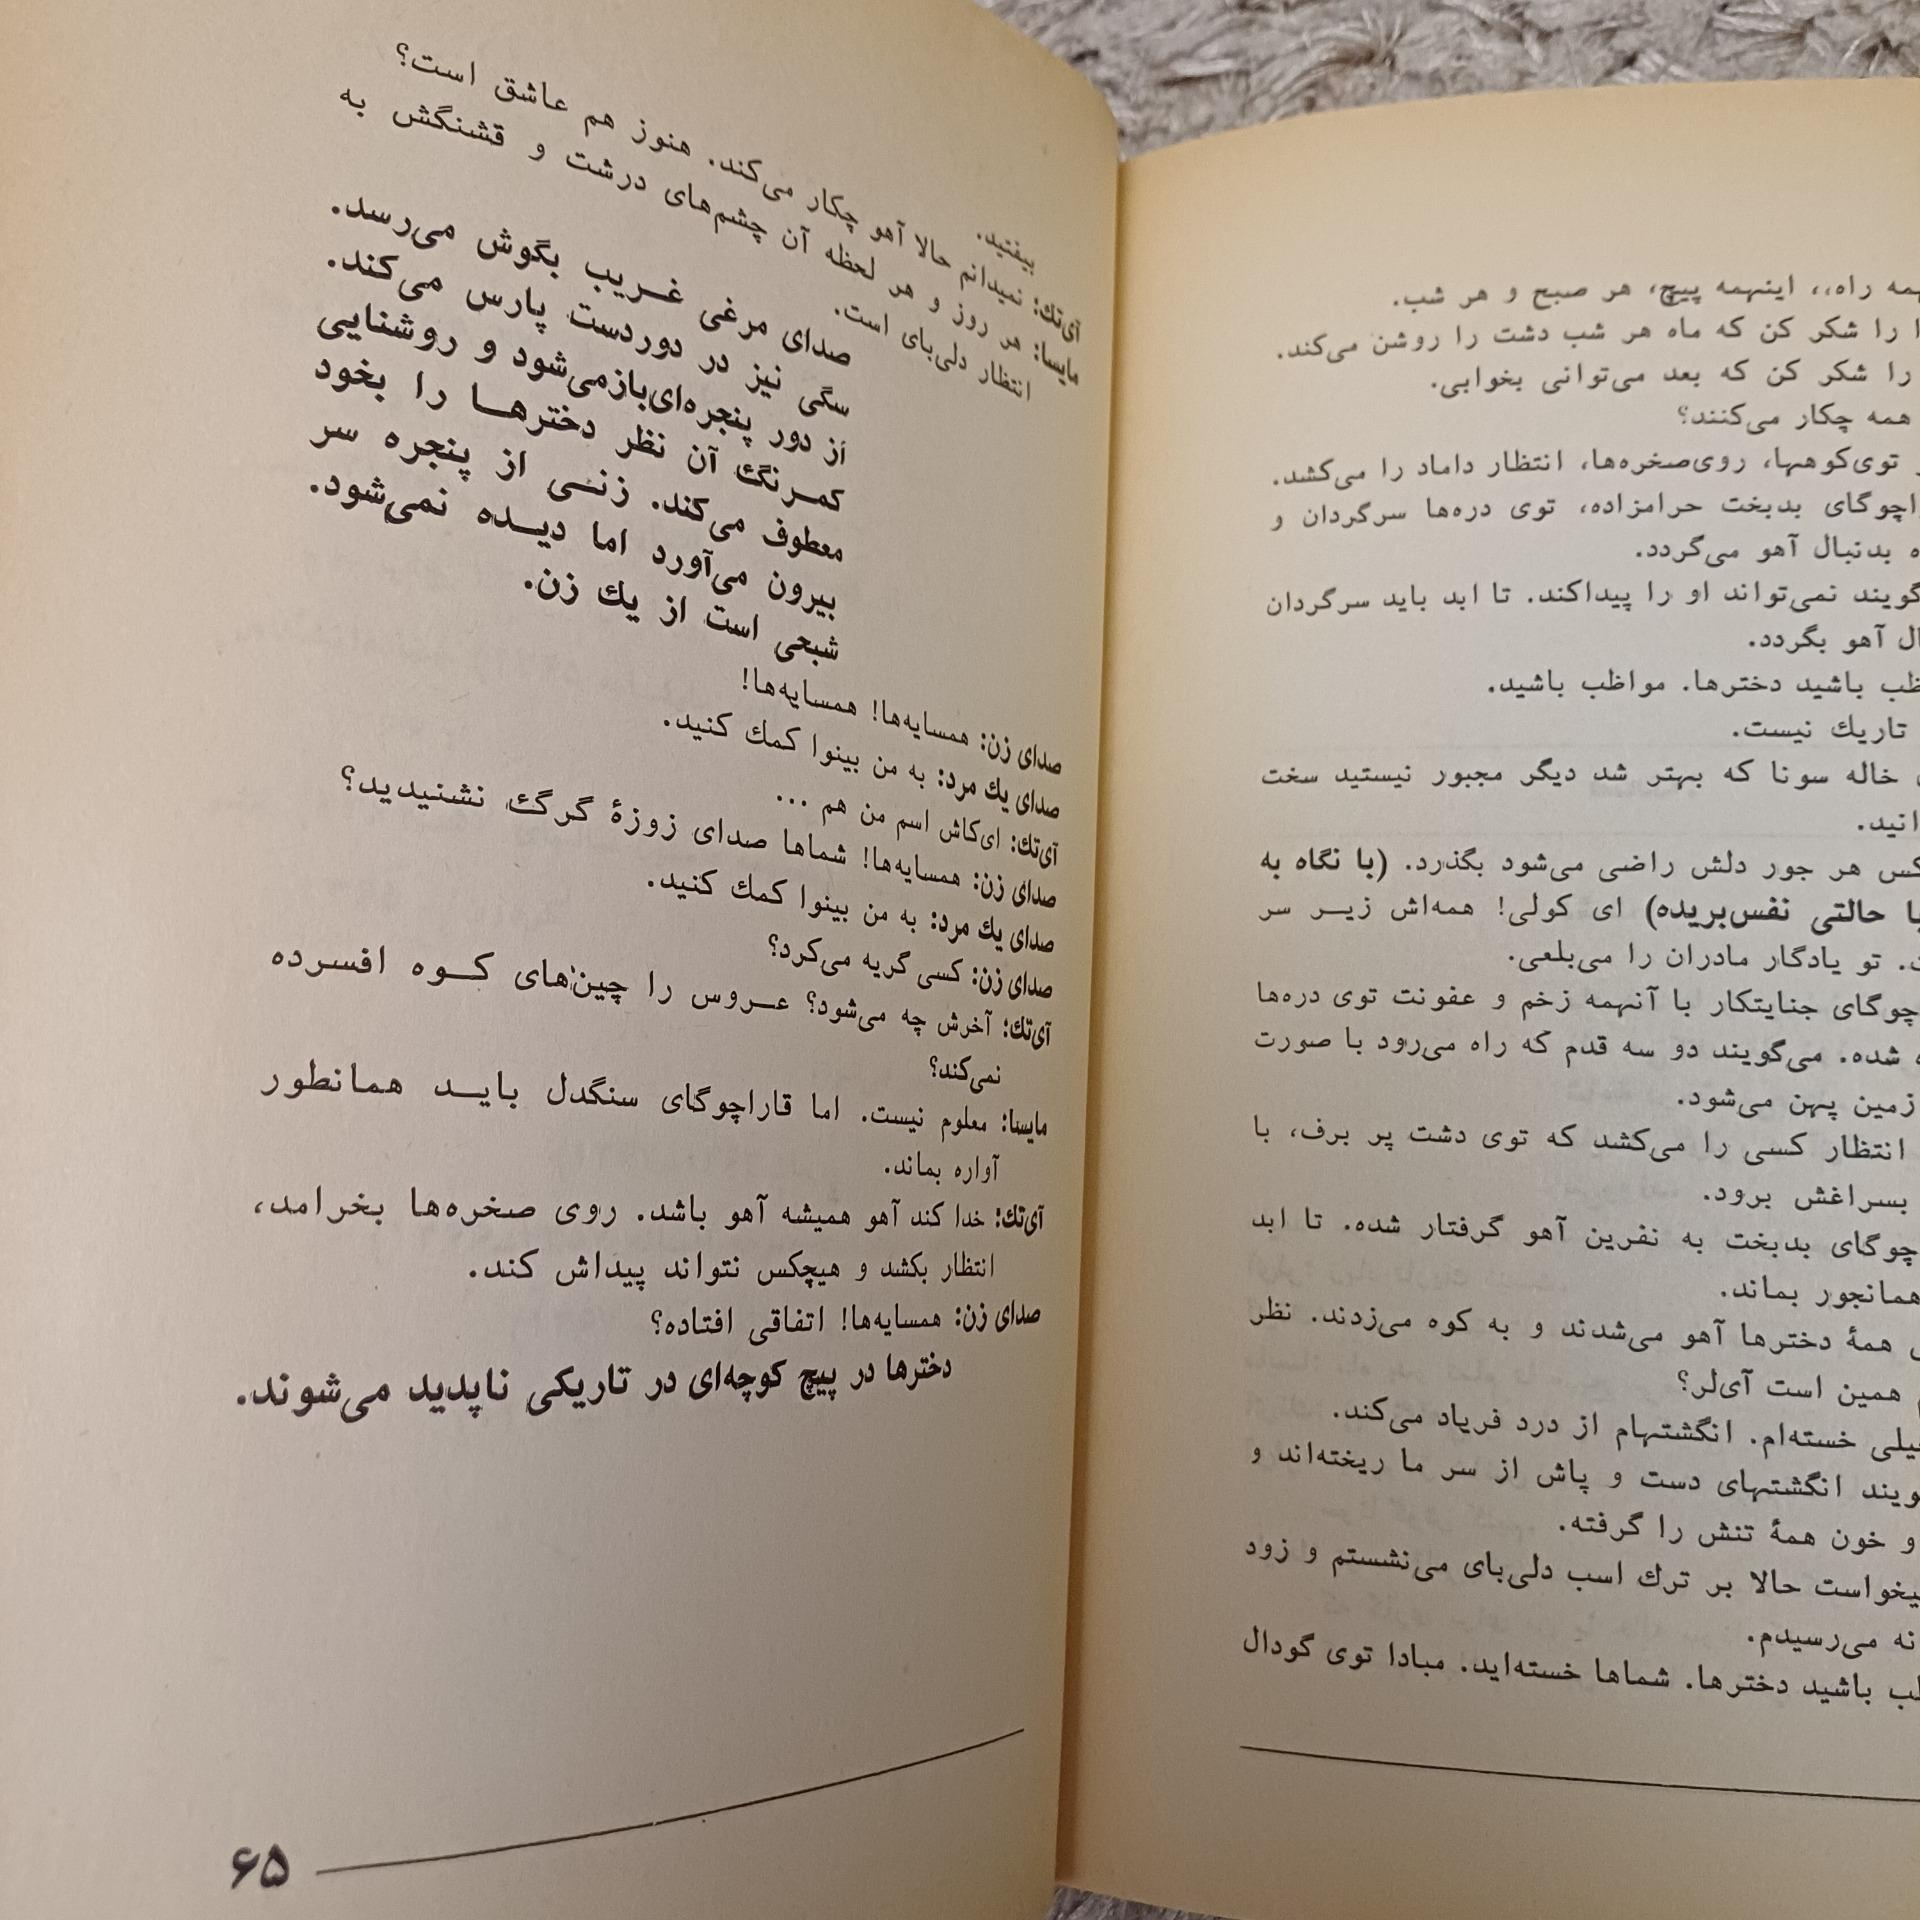 راه،، اینهمه پیچ، هر صبح و هر شب.
را شکر کن که ماه هر شب دشت را روشن می‌کند.
را شکر کن که بعد می‌توانی بخوابی.
همه چکار می‌کنند؟
توی‌کوهها، روی‌صخره‌ها، انتظار داماد را می‌کشد.
بدبخت حرامزاده، توی دره‌ها سرگردان و
بدنبال آهو می‌گردد.
نمی‌تواند او را پیداکند. تا ابد باید سرگردان
آهو بگردد.
باشید دخترها. مواظب باشید.
تاریك نیست.
خاله سونا که بهتر شد دیگر مجبور نیستید سخت
هر جور دلش راضی می‌شود بگذرد. (با نگاه به
حالتی نفس‌بریده) ای کولی! همه‌اش زیر سر
تو یادگار مادران را می‌بلعی.
جنایتکار با آنهمه زخم و عفونت توی دره‌ها
شده. می‌گویند دو سه قدم که راه می‌رود با صورت
زمین پهن می‌شود.
انتظار کسی را می‌کشد که توی دشت پر برف، با
بسراغش برود.
بدبخت به نفرین آهو گرفتار شده. تا ابد
همانجور بماند.
همهٔ دخترها آهو می‌شدند و به کوه می‌زدند. نظر
همین است آی‌لر؟
خسته‌ام. انگشتهام از درد فریاد می‌کند.
انگشتهای دست و پاش از سر ما ریخته‌اند و
و خون همهٔ تنش را گرفته.
حالا بر ترك اسب دلی‌بای می‌نشستم و زود
می‌رسیدم.
باشید دخترها. شماها خسته‌اید. مبادا توی گودال
بیفتید.
آی‌تك: نمیدانم حالا آهو چکار می‌کند. هنوز هم عاشق است؟
مایسا: هر روز و هر لحظه آن چشم‌های درشت و قشنگش به
انتظار دلی‌بای است.
صدای مرغی غریب بگوش می‌رسد.
سگی نیز در دوردست پارس می‌کند.
از دور پنجره‌ای‌بازمی‌شود و روشنایی
کمرنگ آن نظر دخترها را بخود
معطوف می‌کند. زنی از پنجره سر
بیرون می‌آورد اما دیده نمی‌شود.
شبحی است از یك زن.
صدای زن: همسایه‌ها! همسایه‌ها!
صدای یك مرد: به من بینوا کمك کنید.
آی‌تك: ای‌کاش اسم من هم ...
صدای زن: همسایه‌ها! شماها صدای زوزهٔ گرگ نشنیدید؟
صدای یك مرد: به من بینوا کمك کنید.
صدای زن: کسی گریه می‌کرد؟
آی‌تك: آخرش چه می‌شود؟ عروس را چین‌های کوه افسرده
نمی‌کند؟
مایسا: معلوم نیست. اما قاراچوگای سنگدل باید همانطور
آواره بماند.
آی‌تك: خدا کند آهو همیشه آهو باشد. روی صخره‌ها بخرامد،
انتظار بکشد و هیچکس نتواند پیداش کند.
صدای زن: همسایه‌ها! اتفاقی افتاده؟
دخترها در پیچ کوچه‌ای در تاریکی ناپدید می‌شوند.
۶۵